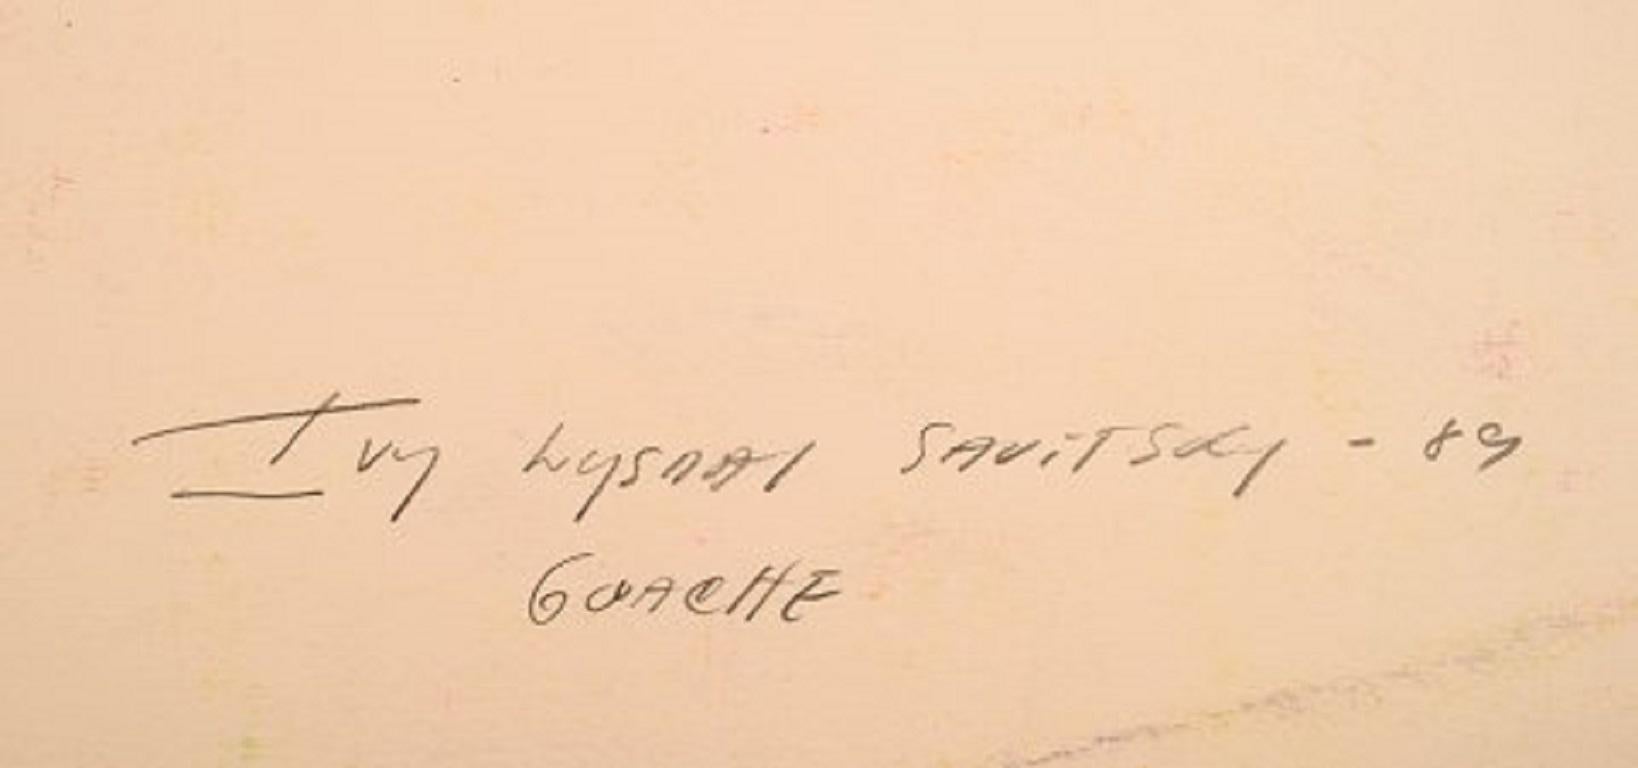 Ivy Lysdal Savitsky - 89
GUACHE